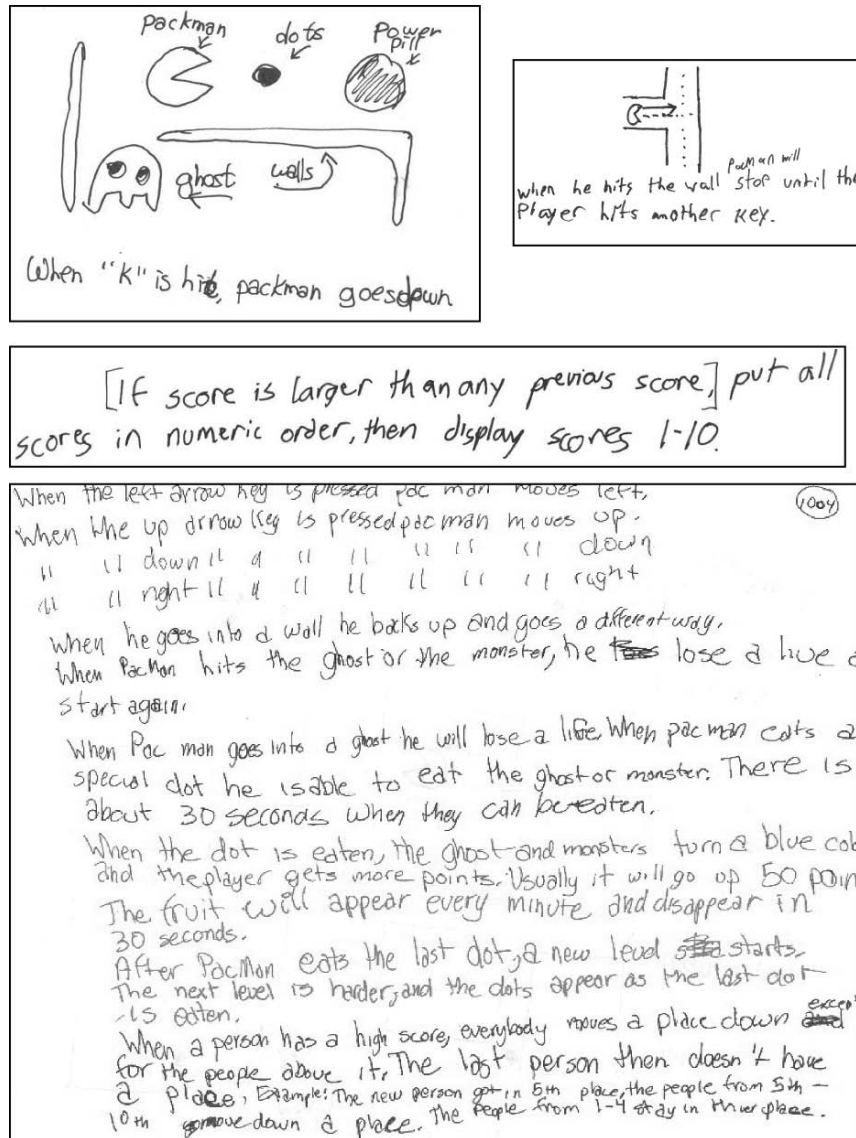 packman
dots
Power
pill
ghost walls
When "K" is hit, packman goes down
pacman will
when he hits the wall stop until the
Player hits another key.
[If score is larger than any previous score,] put all
scores in numeric order, then display scores 1-10.
When the left arrow key is pressed pac man moves left,
1004
When the up arrow key is pressed pac man moves up.
" " down " " " " " " " down
" " right " " " " " " " right
When he goes into a wall he backs up and goes a different way.
When PacMan hits the ghost or the monster, he lose a live
start again.
When Pac man goes into a ghost he will lose a life. When pac man eats a
special dot he is able to eat the ghost or monster. There is
about 30 seconds when they can be eaten.
When the dot is eaten, the ghost and monsters turn a blue
and the player gets more points. Usually it will go up 50
The fruit will appear every minute and disappear in
30 seconds.
After PacMan eats the last dot, a new level starts.
The next level is harder, and the dots appear as the last dot
is eaten.
When a person has a high score, everybody moves a place down
for the people above it. The last person then doesn't have
a place, Example: The new person got in 5th place, the people from 5th -
10th move down a place. The people from 1-4 stay in place.